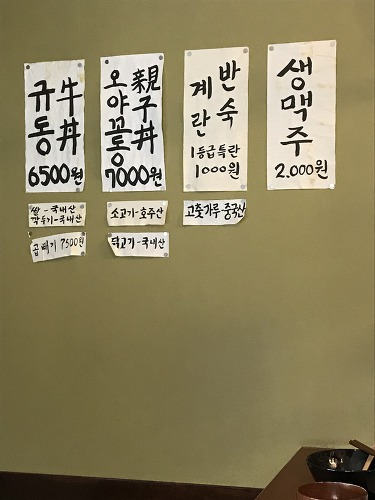 규동
牛丼
6500원
오야꼬동
親子丼
7000원
반숙
계란
1등급특란
1000원
생맥주
2.000원
쌀-국내산
깍두기-국내산
곱빼기 7500원
소고기-호주산
닭고기-국내산
고춧가루 중국산